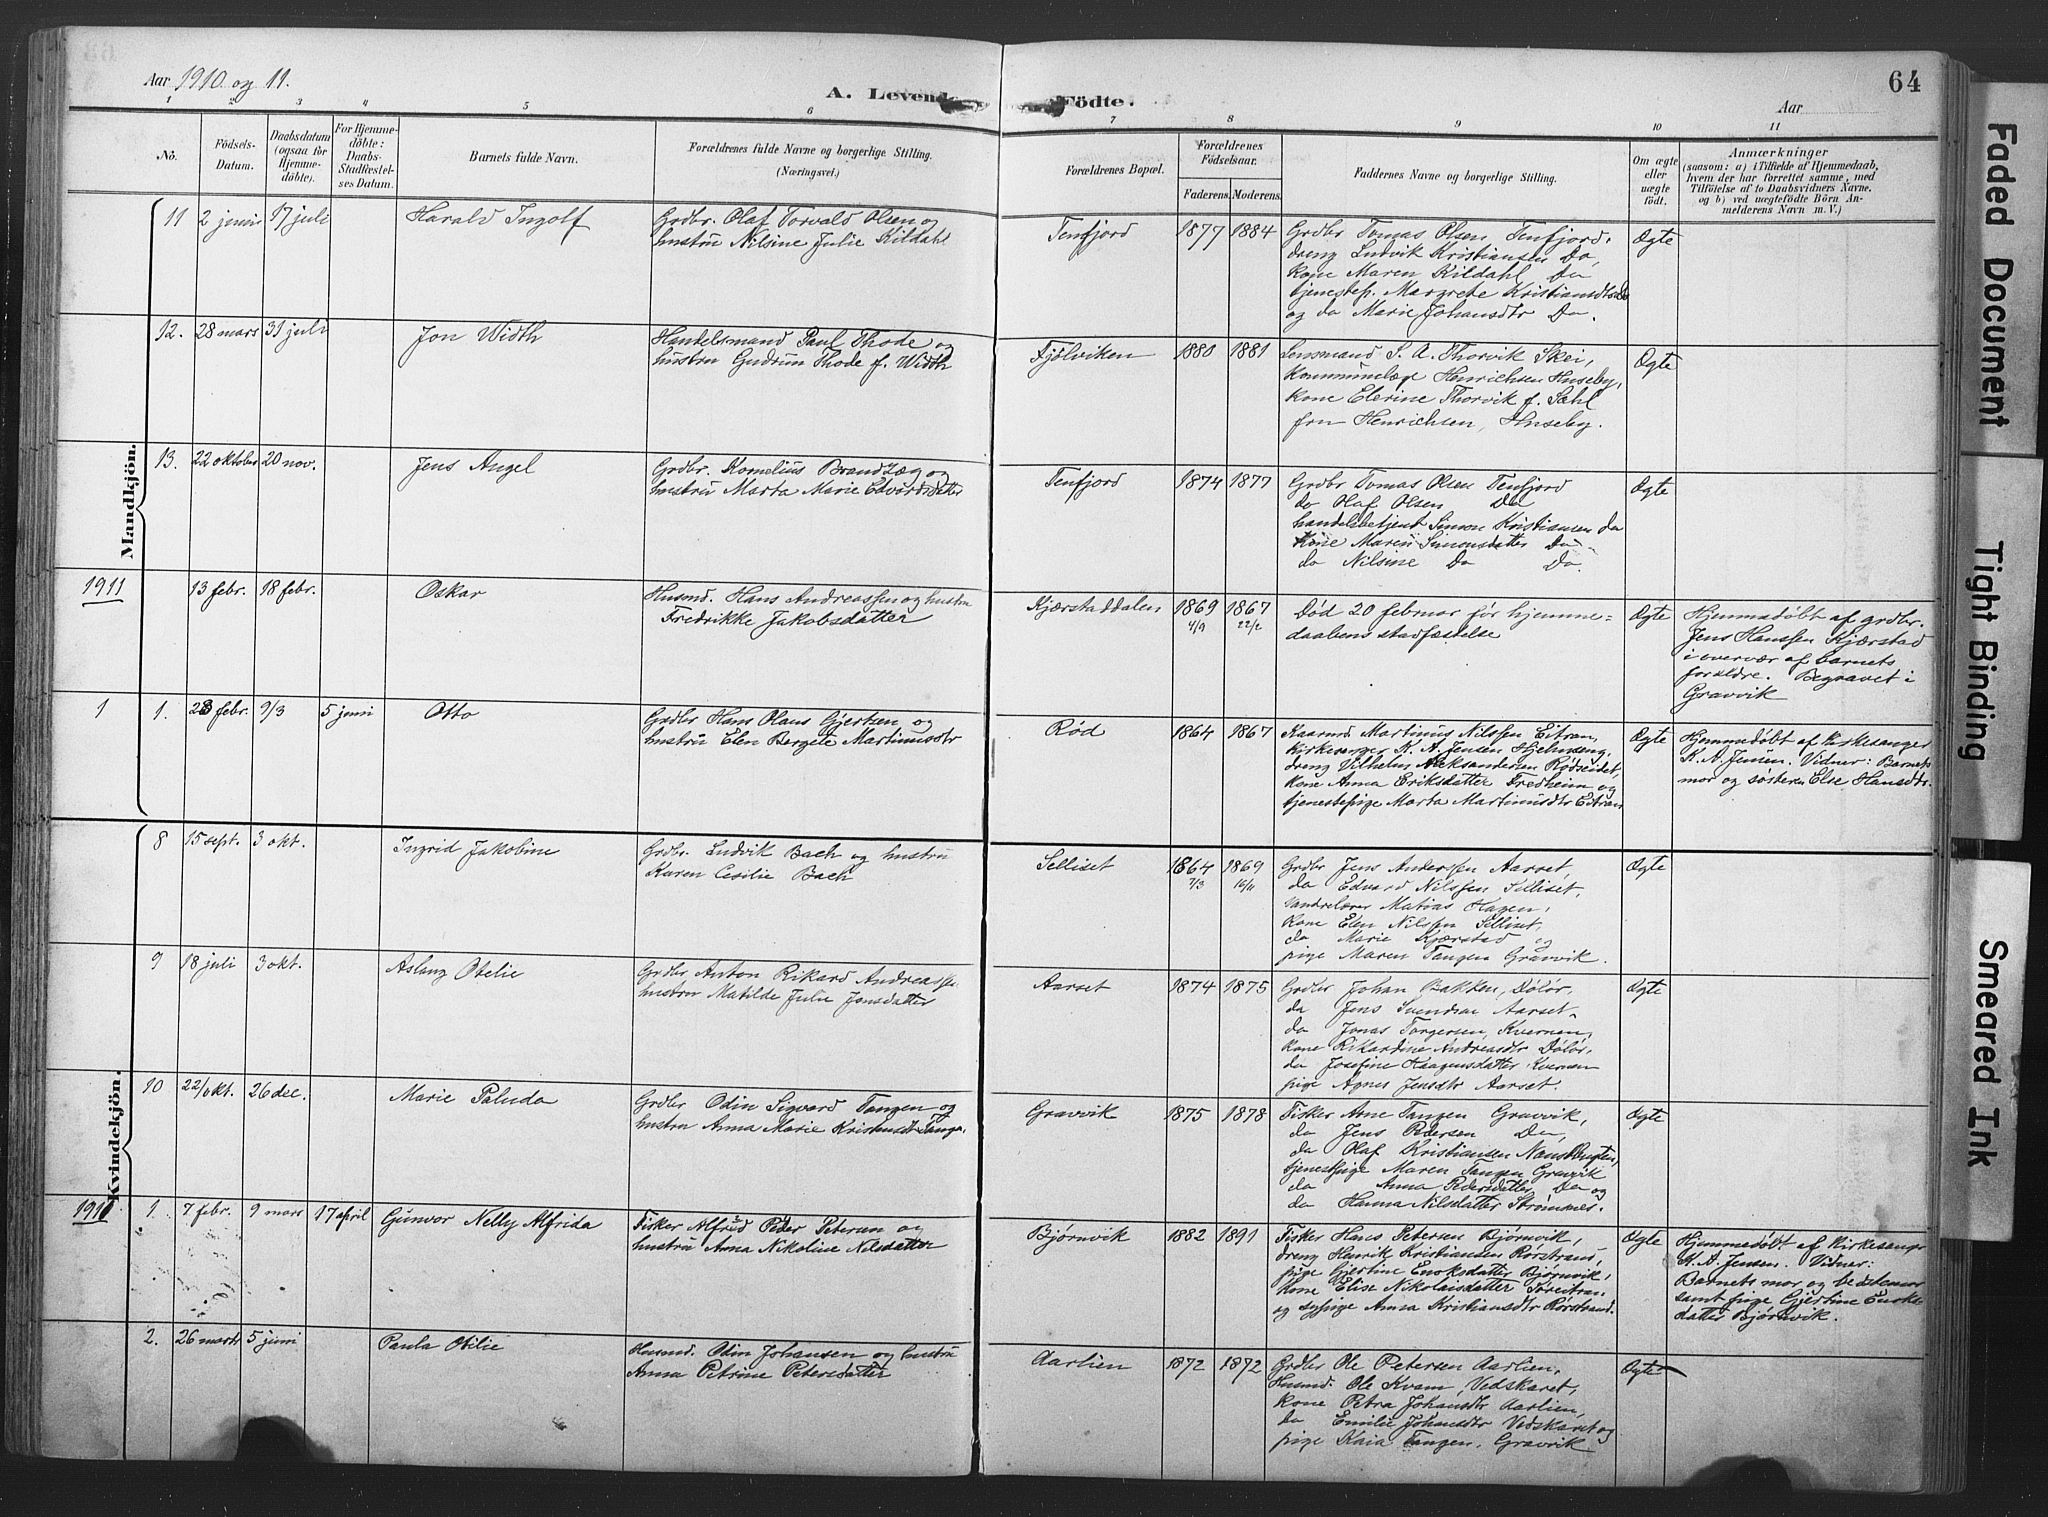 64
Aar 1910 og 11.
A. Levende Födte.
Aar
1 2 3 4 5 6 7 8 9 10 11
No.
Födsels-Datum.
Daabsdatum (ogsaa for Hjemmedöbte).
For Hjemmedöbte: Daabs-Stadfæstelses Datum.
Barnets fulde Navn.
Forældrenes fulde Navne og borgerlige Stilling.
(Næringsvei.)
Forældrenes Bopæl.
Forældrenes Födselsaar.
Faderens. Moderens.
Faddernes Navne og borgerlige Stilling.
Om ægte eller uægte födt.
Anmærkninger
(saasom: a) i Tilfælde af Hjemmedaab,
hvem der har forrettet samme, med
Tilföielse af to Daabsvidners Navne.
og b) ved uægtefödte Börn An-
melderens Navn m. V.)
Mandkjön.
11 2 juni 17 juli Harald Ingolf
Grdbr. Olaf Torvald Olsen og
hustru Nilsine Julie Kildahl
Tenfjord 1877 1884
Grdbr Tomas Olsen, Tenfjord,
dreng Ludvik Kristiansen Do,
kone Maren Kildahl Do
tjenestep. Margrete Kristiansdtr Do
og do Marie Johansdtr Do.
Ægte
12. 28 mars 31 juli Jon Width
Handelsmand Paul Thode og
hustru Gudrun Thode f. Width
Fjølviken 1880 1881
Lensmand S. A. Thorvik Skei,
kommunelæge Henrichsen Huseby,
kone Elerine Thorvik f. Sæhl
fru Henrichsen, Huseby.
Ægte
13. 22 oktober 20 nov. Jens Angel
Grdbr. Kornelius Brandzæg og
hustru Marta Marie Edvardsdatter
Tenfjord 1874 1877
Grdbr Tomas Olsen Tenfjord
do Olaf Olsen Do
handelsbetjent Simon Kristiansen do
Kone Maren Simonsdatter Do
do Nilsine Do Do.
Ægte
1911 13 febr. 18 febr. Oskar
Husmd. Hans Andreassen og hustru
Fredrikke Jakobsdatter
Kjærstaddalen 1869 4/9 1867 22/2
Død 20 februar før hjemme-
daabens stadfæstelse
Ægte
Hjemmedøbt af grdbr.
Jens Hanssen Kjærstad
i overvær af barnets
forældre. Begravet i
Gravvik
1 1. 28 febr. 9/3 5 juni Otto
Grdbr Hans Olaus Gjertsen og
hustru Elen Bergete Martinusdtr
Rød 1864 1867
Kaarmd Martinus Nilssen Eitran,
kirkesanger K. A. Jensen Hjelmseng,
dreng Vilhelm Aleksandersen Rødseidet,
kone Anna Eriksdatter Fredheim og
tjenestepige Marta Martinusdtr Eitran
Ægte
Hjemmedøbt af kirkesanger
K. A. Jensen. Vidner: Barnets
mor og søsteren Else Hansdtr.
Kvindekjön.
8 15 sept. 3 okt. Ingrid Jakobine
Grdbr. Ludvik Bach og hustru
Karen Cesilie Bach
Selliset 1864 7/3 1869 16/11
Grdbr Jens Anderssen Aarset,
do Edvard Nilssen Selliset,
Vandrelærer Matias Hagen,
kone Elen Nilssen Selliset,
do Marie Kjærstad og
pige Maren Tangen Gravvik.
Ægte
9 18 juli 3 okt. Aslaug Otelie
Grdbr Anton Rikard Andreassen
hustru Matilde Julie Jonsdatter
Aarset 1874 1875
Grdbr Johan Bakken, Dølør,
do Jens Svendsen Aarset
do Jonas Torgersen, Kvernen,
kone Rikardine Andreasdtr Dølør,
do Josefine Haagensdatter, Kvernen
pige Agnes Jensdtr Aarset.
Ægte
10 22/okt. 26 dec. Marie Paluda
Grdbr Odin Sigvard Tangen og
hustru Anna Marie Kristensdtr Tangen
Gravvik 1875 1878
Fisker Arne Tangen Gravvik,
do Jens Pedersen Do,
do Olaf Kristiansen
tjenestpige Maren Tangen Gravvik
do Anna Pedersdatter Do og
do Hanna Nilsdatter Strømnes.
Ægte
1911 1. 7 febr. 9 mars 17 april Gunvor Nelly Alfrida
Fisker Alfred Peder Petersen og
hustru Anna Nikoline Nilsdatter
Bjørnvik 1882 1891
Fisker Hans Petersen Bjørnvik,
dreng Henrik Kristiansen Rørstrand,
pige Gjertine Enoksdatter Bjørnvik,
kone Elise Nikolaisdatter
og sypige Anna Kristiansdtr Rørstrand.
Ægte
Hjemmedøbt af kirkesanger
K. A. Jensen. Vidner:
Barnets mor og bedstemor
samt pige Gjertine Enoks-
datter Bjørnvik.
2. 26 marts 5 juni Paula Otilie
Husmd. Odin Johansen og hustru
Anna Petrine Petersdatter
Aarlien 1872 1872
Grdbr Ole Petersen Aarlien,
Husmd. Ole Kvam, Vedskaret,
kone Petra Johansdtr Aarlien,
do Emilie Johansdtr Vedskaret og
pige Kaia Tangen, Gravvik
Ægte
Faded Document
Tight Binding
Smeared Ink